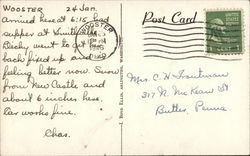 WOOSTER 24 Jan.
Arrived here at 6:15, had
supper at Smithville
Becky went to get
back fixed up and
feeling better now. Snow
from New Castle and
about 6 inches here.
Car works fine.
Chas.
Post Card
WOOSTER
OHIO
Mrs. C. H. Troutman
317 N. McKean St
Butler, Penna